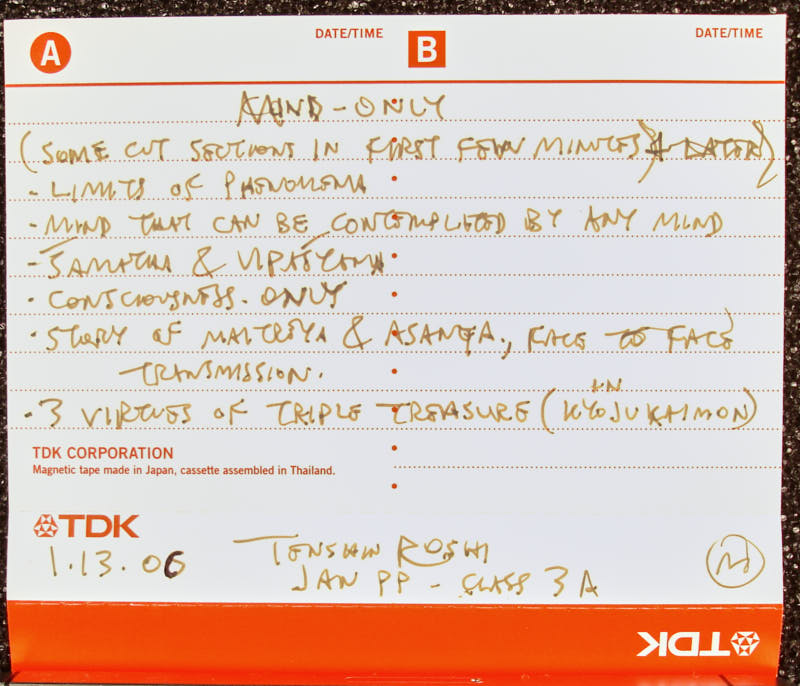 A DATE/TIME B DATE/TIME
MIND-ONLY
(SOME CUT SECTIONS IN FIRST FEW MINUTES) & LATER)
- LIMITS OF PHENOMENA
- MIND THAT CAN BE CONTEMPLATED BY ANY MIND
- SAMATHA & VIPASYANA
• CONSCIOUSNESS-ONLY
• STORY OF MAITREYA & ASANGA, FACE TO FACE
TRANSMISSION.
• 3 VIRTUES OF TRIPLE TREASURE (IN KYOJUKAIMON)
TDK CORPORATION
Magnetic tape made in Japan, cassette assembled in Thailand.
TDK
1.13.06 TENSHIN ROSHI
JAN PP - CLASS 3A
TDK